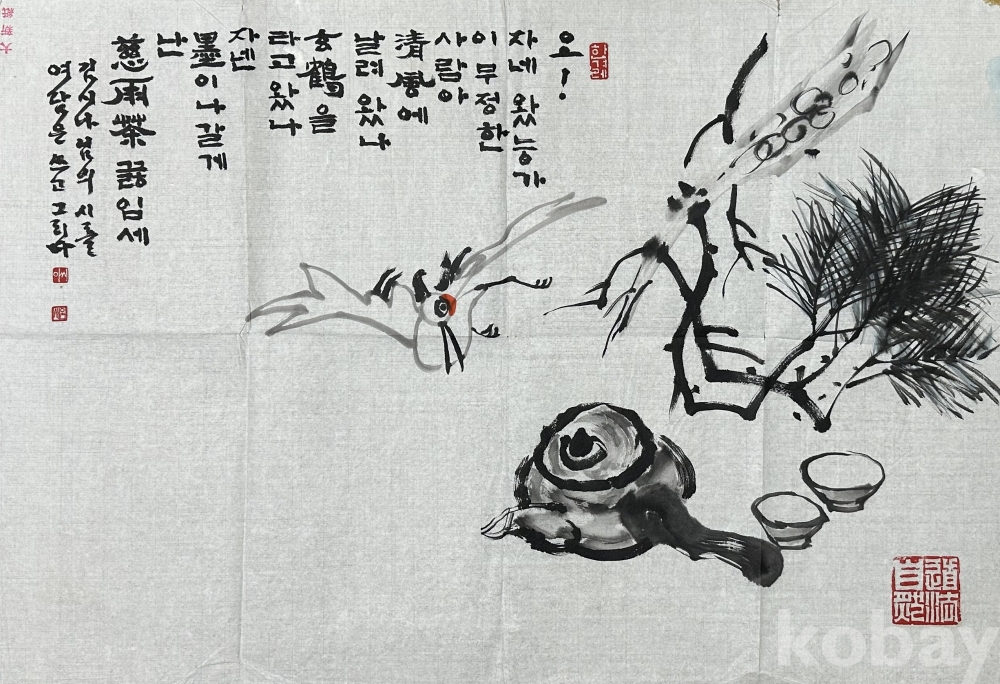 오!
자네 왔능가
이 무정한
사람아
清風에
날려 왔나
玄鶴을
타고 왔나
자넨
墨이나 갈게
난
慈雨茶 끓임세
여담은 쓰고 그리다
kobay